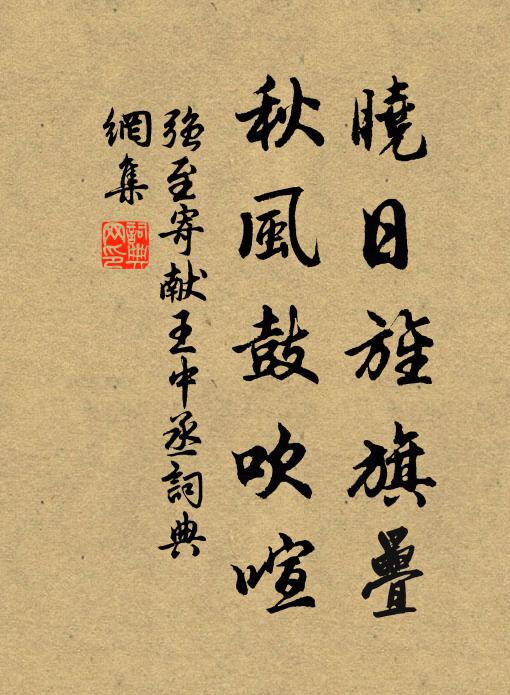 曉日旌旗疊
秋風鼓吹喧
強至寄献王中丞詞典
網集
詞典
网印